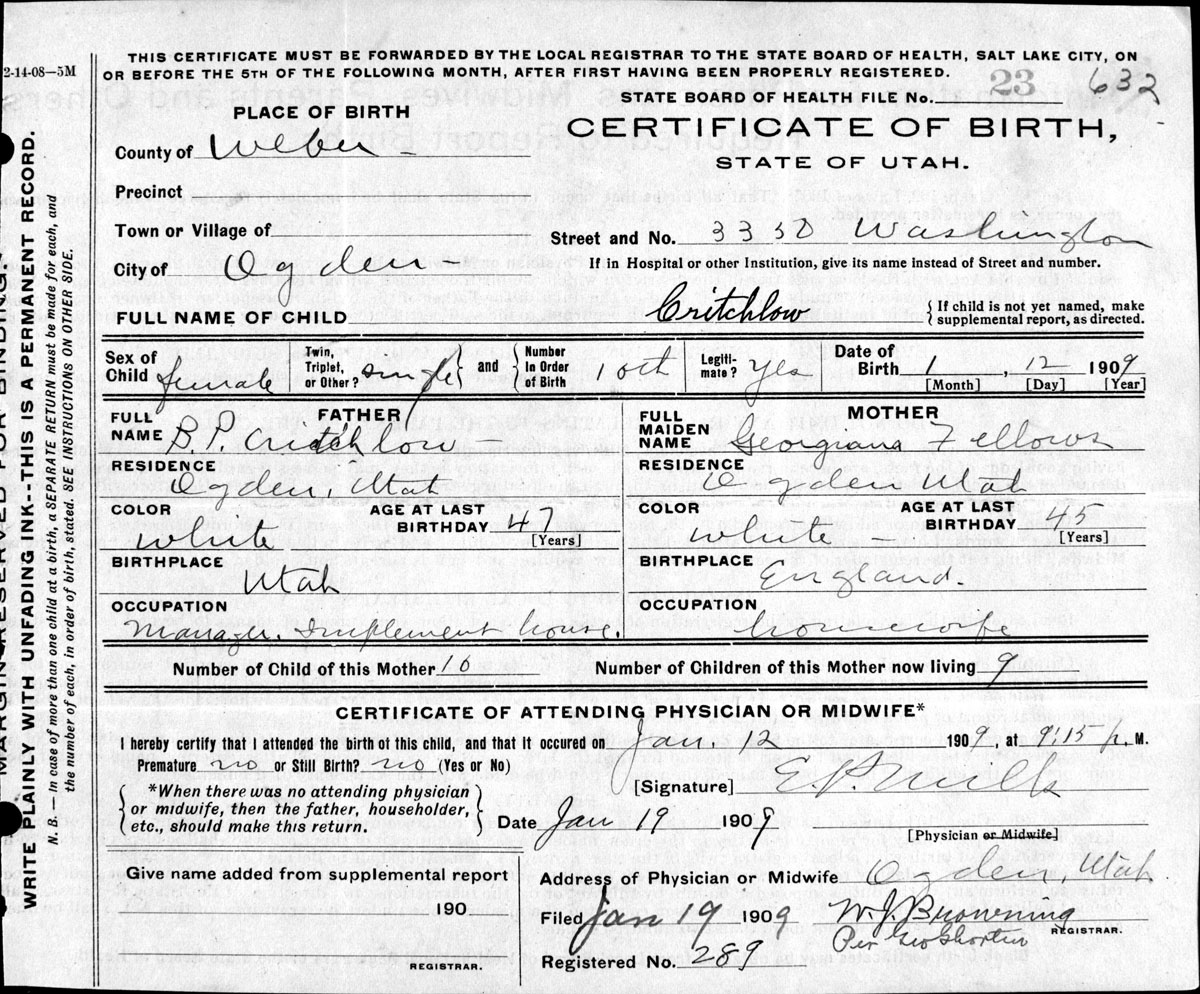 THIS CERTIFICATE MUST BE FORWARDED BY THE LOCAL REGISTRAR TO THE STATE BOARD OF HEALTH, SALT LAKE CITY, ON
2-14-08—5M
OR BEFORE THE 5TH OF THE FOLLOWING MONTH, AFTER FIRST HAVING BEEN PROPERLY REGISTERED.
23 632
STATE BOARD OF HEALTH FILE No.
PLACE OF BIRTH
CERTIFICATE OF BIRTH,
STATE OF UTAH.
County of Weber
Precinct
Town or Village of
Street and No. 3350 Washington
City of Ogden
If in Hospital or other Institution, give its name instead of Street and number.
FULL NAME OF CHILD Critchlow
{If child is not yet named, make supplemental report, as directed.
Sex of Child female Twin, Triplet, or Other? single } and { Number In Order of Birth 10th Legitimate? Yes Date of Birth 1, 12 1909
[Month] [Day] [Year]
FATHER
FULL NAME Critchlow
RESIDENCE
Ogden, Utah
COLOR AGE AT LAST BIRTHDAY 47
white [Years]
BIRTHPLACE
Utah
OCCUPATION
Manager. Implement house.
MOTHER
FULL MAIDEN NAME Georgiana Fellows
RESIDENCE
Ogden Utah
COLOR AGE AT LAST BIRTHDAY 45
white [Years]
BIRTHPLACE
England.
OCCUPATION
housewife
Number of Child of this Mother 10 Number of Children of this Mother now living 9
CERTIFICATE OF ATTENDING PHYSICIAN OR MIDWIFE*
I hereby certify that I attended the birth of this child, and that it occured on Jan. 12 1909, at 9:15 p. M.
Premature no or Still Birth? no (Yes or No)
[Signature] E. P. Mills
{*When there was no attending physician
or midwife, then the father, householder,
etc., should make this return.}
Date Jan 19 1909
[Physician or Midwife]
Give name added from supplemental report
190
REGISTRAR.
Address of Physician or Midwife Ogden Utah
Filed Jan 19 1909 W. J. Browning
REGISTRAR.
Per Geo Shorten
Registered No. 289
MARGIN RESERVED FOR BINDING.
WRITE PLAINLY WITH UNFADING INK--THIS IS A PERMANENT RECORD.
N. B. — In case of more than one child at a birth, a SEPARATE RETURN must be made for each, and
the number of each, in order of birth, stated. SEE INSTRUCTIONS ON OTHER SIDE.